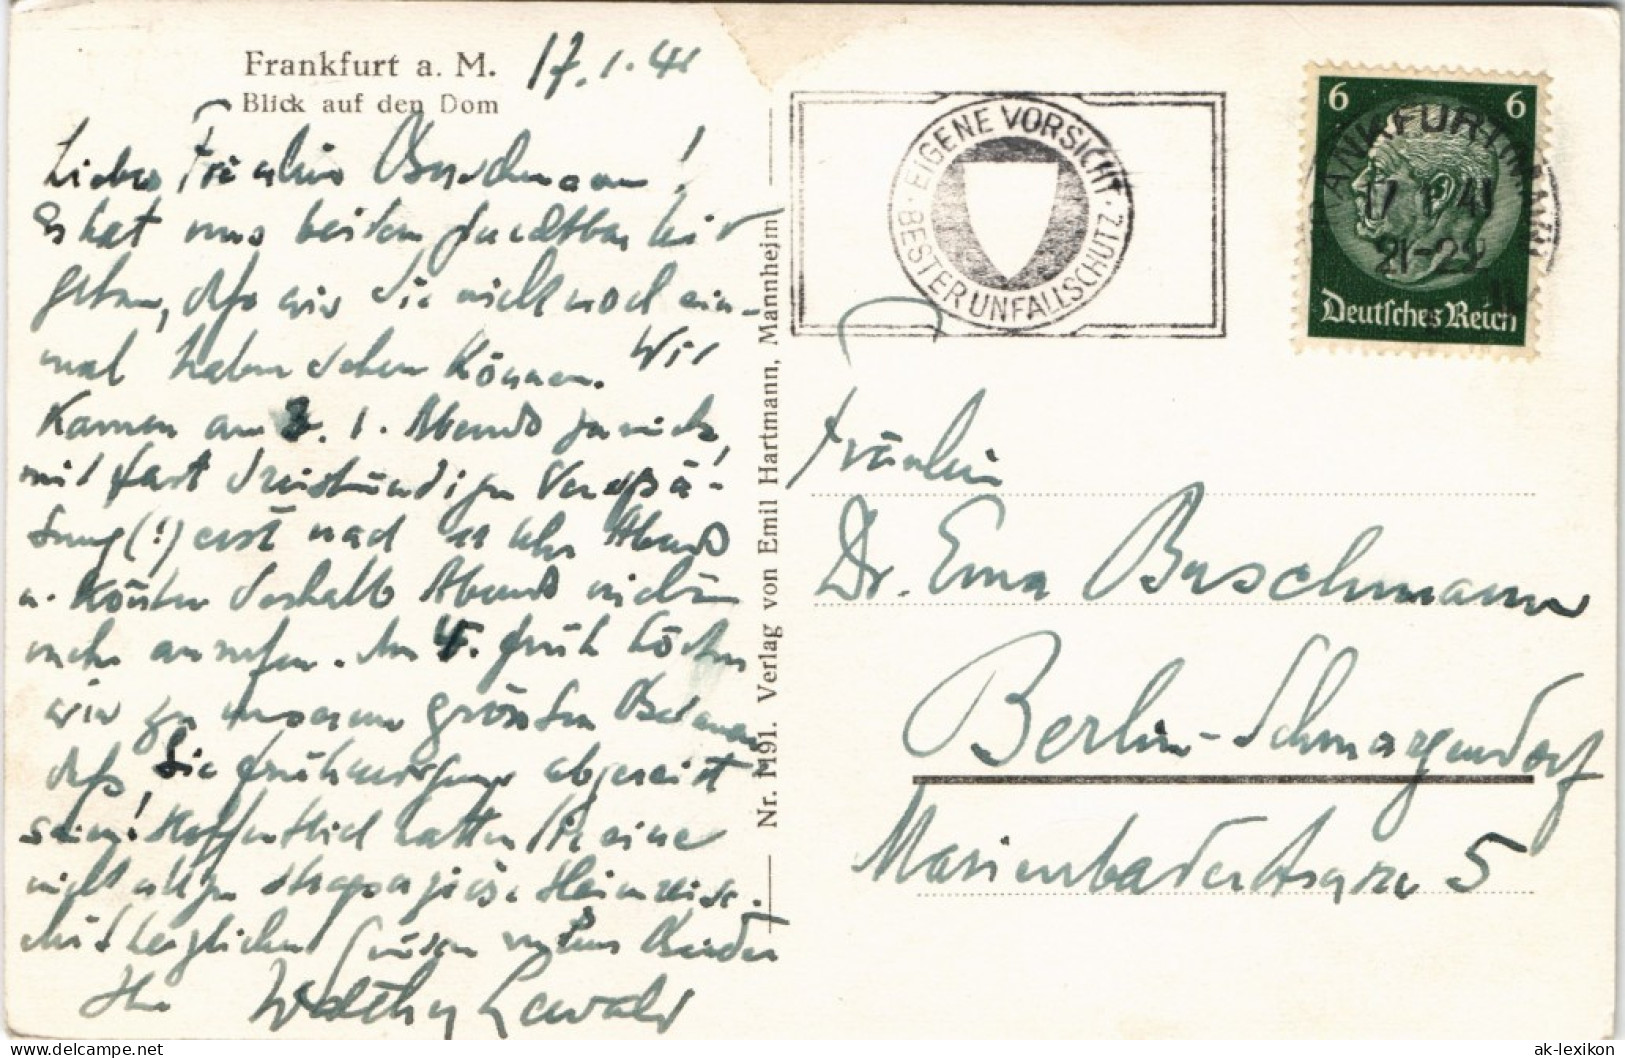 Frankfurt a. M.
Blick auf den Dom
17.1.41
Liebes Fräulein Buschmann!
Es hat uns beiden furchtbar leid
getan, daß wir Sie nicht noch ein-
mal haben sehen können. Wir
kamen am 3. 1. Abends zurück,
mit fast dreistündiger Verspä-
tung (!) erst nach 11 Uhr Abends
u. konnten deshalb Abends nicht
mehr anrufen. Am 4. früh hörten
wir zu unserem größten Bedauern
daß Sie frühmorgens abgereist
seien! Hoffentlich hatten Sie eine
nicht allzu strapaziöse Heimreise.
Mit herzlichen Grüßen
Ihr
Nr. 1191. Verlag von Emil Hartmann, Mannheim
EIGENE VORSICHT · BESTER UNFALLSCHUTZ ·
6 6
Deutsches Reich
FRANKFURT (MAIN)
17 1 41
21-22
Fräulein
Dr. Erna Buschmann
Berlin-Schmargendorf
Marienbaderstrasse 5
ak-lexikon